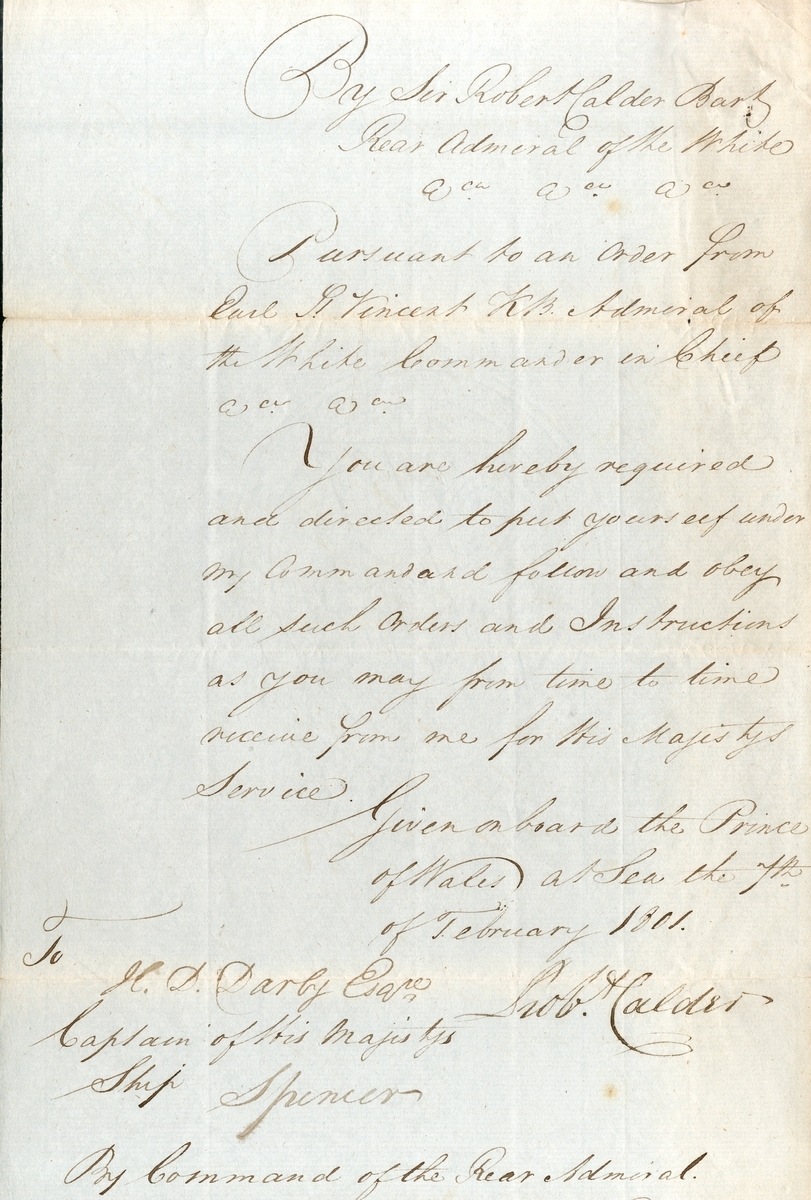 By Sir Robert Calder Bart
Rear Admiral of the White
&ca. &ca. &ca.
Pursuant to an Order from
Earl St Vincent KB. Admiral of
the White Commander in Chief
&ca. &ca.
You are hereby required
and directed to put yourself under
my Command and follow and obey
all such Orders and Instructions
as you may from time to time
receive from me for His Majestys
Service.
Given on board the Prince
of Wales at Sea the 7th
of February 1801.
To
H. D. Darby Esqre
Robt. Calder
Captain of His Majestys
Ship Spencer
By Command of the Rear Admiral.